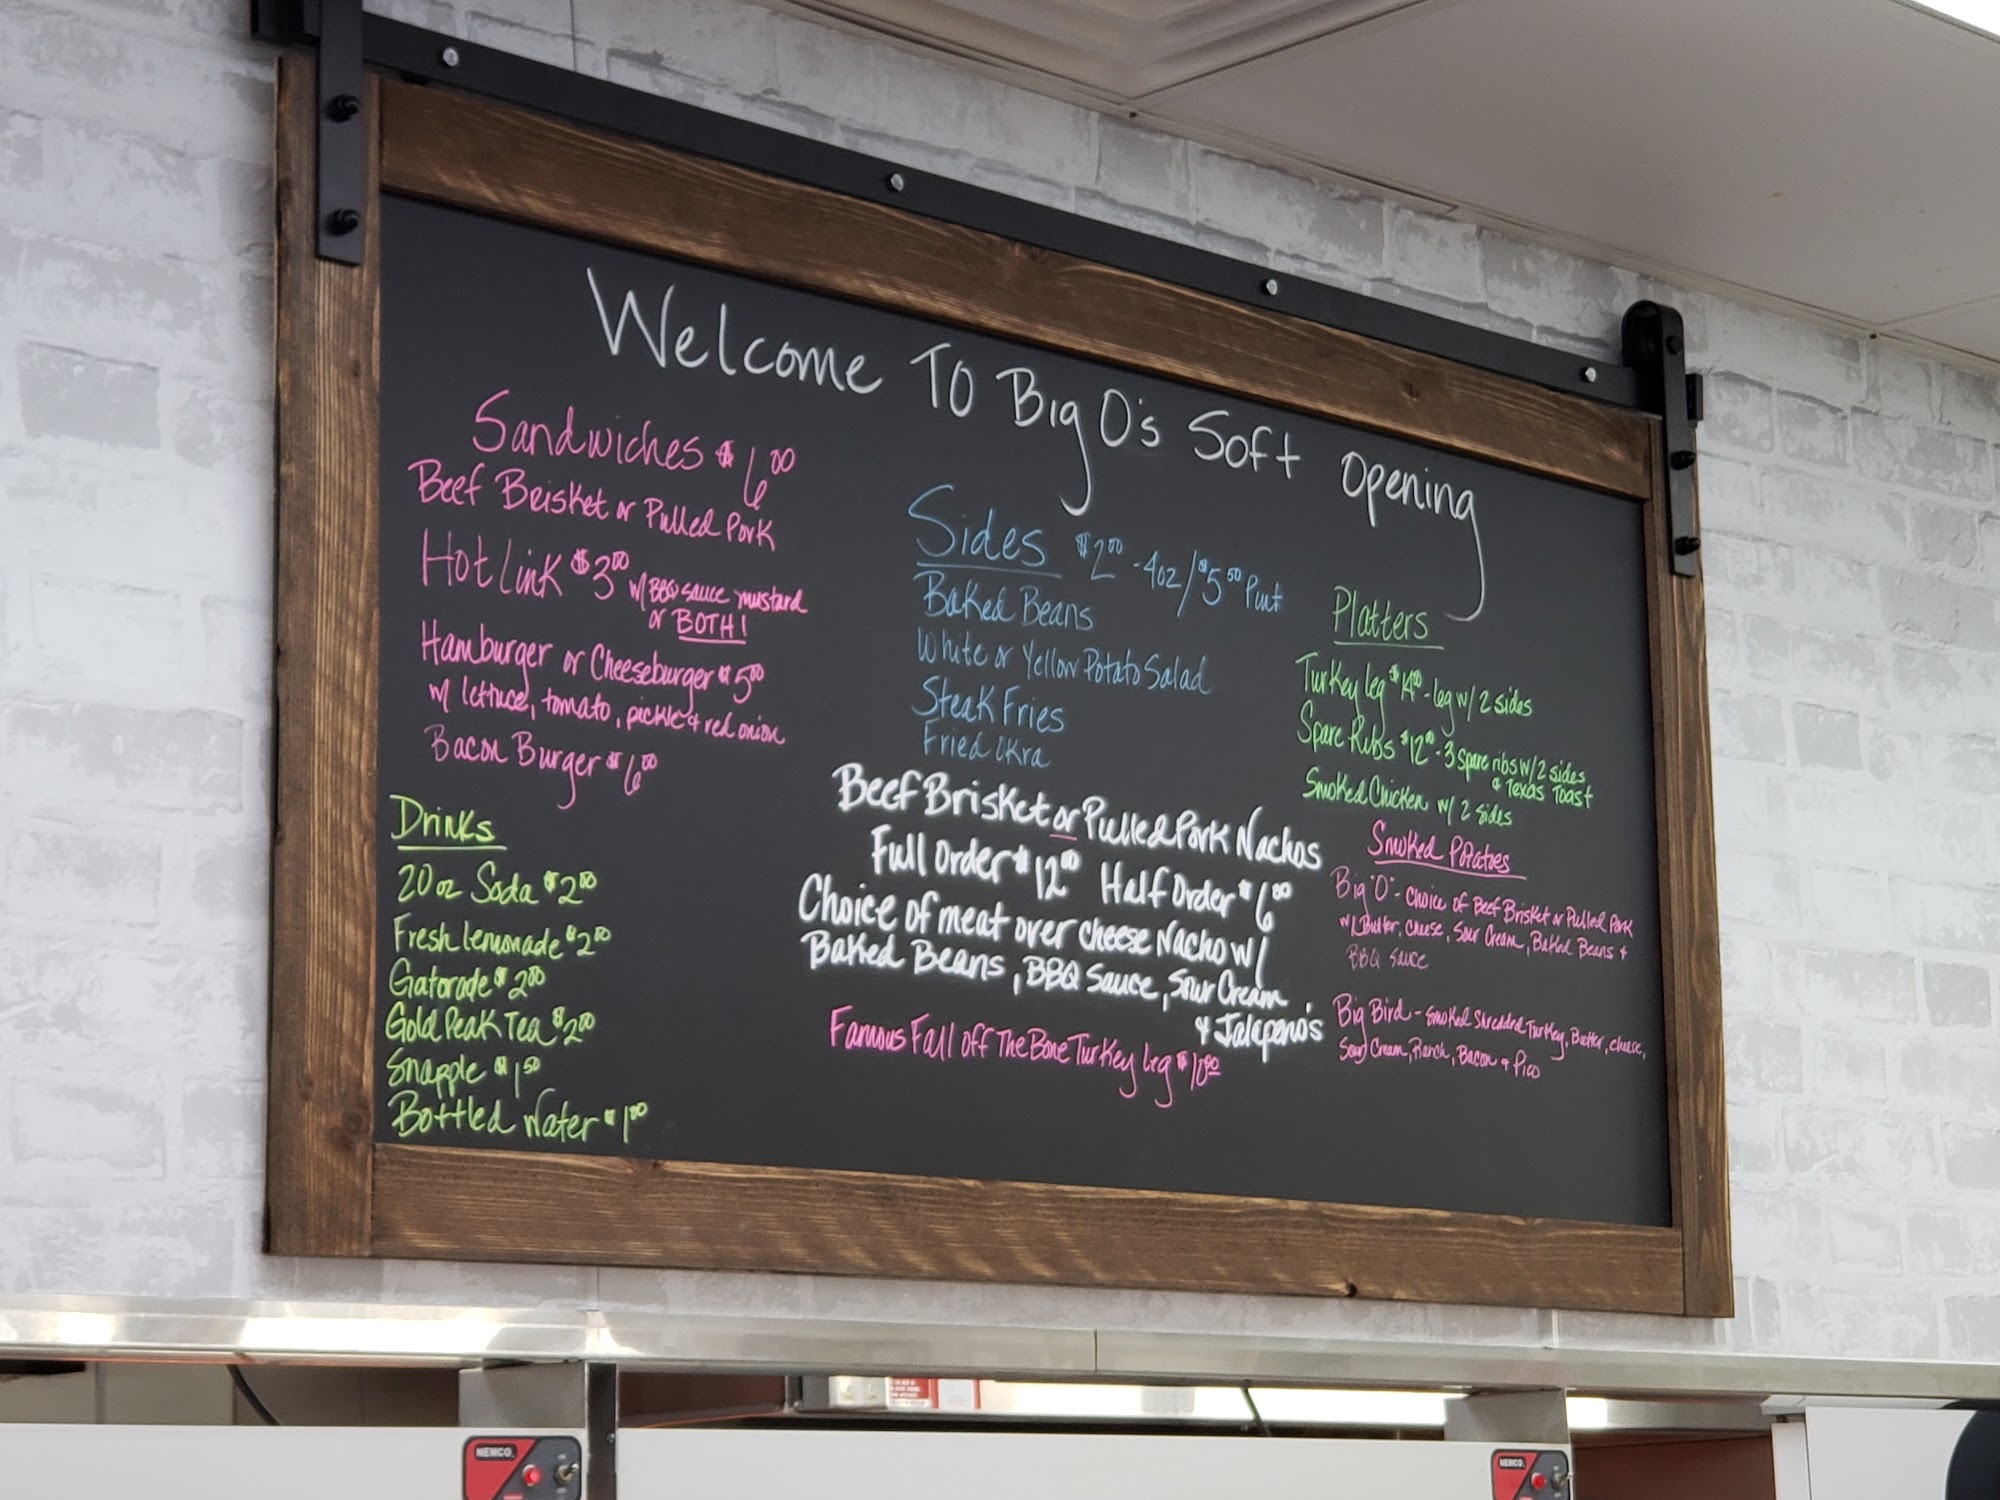 Welcome To Big O's Soft Opening
Sandwiches $6.00
Beef Brisket or Pulled Pork
Hot Link $3.00 w/ BBQ sauce mustard
or BOTH!
Hamburger or Cheeseburger $5.00
w/ lettuce, tomato, pickle & red onion
Bacon Burger $6.00
Drinks
20 oz Soda $2.00
Fresh Lemonade $2.00
Gatorade $2.00
Gold Peak Tea $2.00
Snapple $1.50
Bottled Water $1.00
Sides $2.00 - 4oz / $5.50 Pint
Baked Beans
White or Yellow Potato Salad
Steak Fries
Fried Okra
Beef Brisket or Pulled Pork Nachos
Full Order $12.00 Half Order $6.00
Choice of meat over cheese Nacho w/
Baked Beans, BBQ Sauce, Sour Cream
& Jalapeno's
Famous Fall off The Bone Turkey Leg $10.00
Platters
Turkey Leg $14.00 - leg w/ 2 sides
Spare Ribs $12.00 - 3 spare ribs w/ 2 sides
& Texas Toast
Smoked Chicken w/ 2 sides
Smoked Potatoes
Big "O" - Choice of Beef Brisket or Pulled Pork
w/ Butter, cheese, Sour Cream, Baked Beans &
BBQ Sauce
Big Bird - Smoked Shredded Turkey, Butter, cheese,
Sour Cream, Ranch, Bacon & Pico
NEMCO
NEMCO